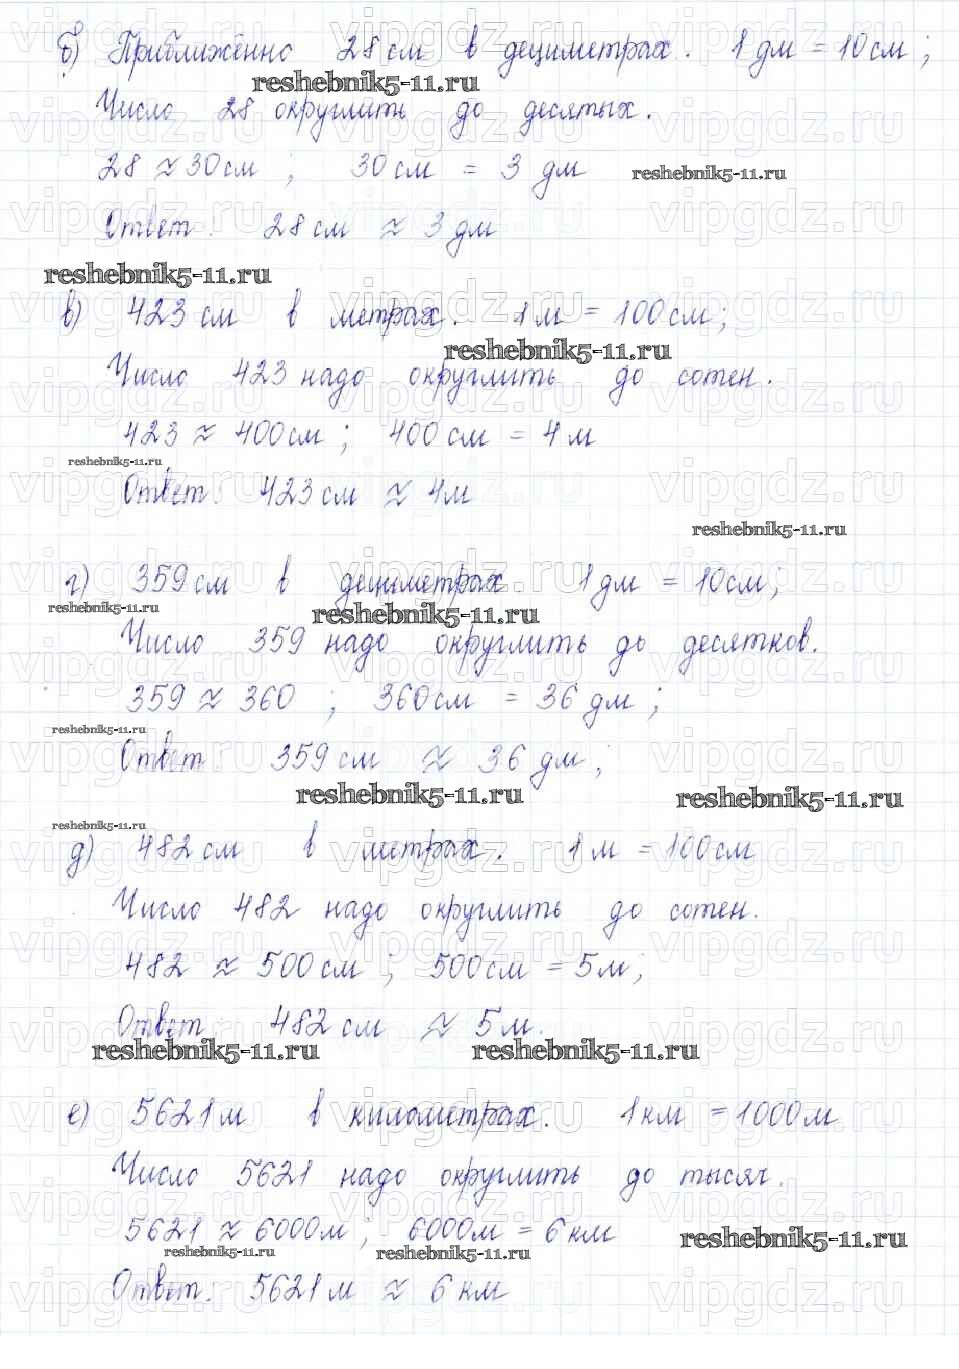 б) Приближённо 28 см в дециметрах. 1 дм = 10 см;
reshebnik5-11.ru
Число 28 округлить до десятых.
28 ≈ 30 см ; 30 см = 3 дм
reshebnik5-11.ru
Ответ: 28 см ≈ 3 дм
reshebnik5-11.ru
в) 423 см в метрах. 1 м = 100 см;
reshebnik5-11.ru
Число 423 надо округлить до сотен.
423 ≈ 400 см ; 400 см = 4 м
reshebnik5-11.ru
Ответ: 423 см ≈ 4 м
reshebnik5-11.ru
г) 359 см в дециметрах. 1 дм = 10 см;
reshebnik5-11.ru reshebnik5-11.ru
Число 359 надо округлить до десятков.
359 ≈ 360 ; 360 см = 36 дм ;
reshebnik5-11.ru
Ответ: 359 см ≈ 36 дм ;
reshebnik5-11.ru reshebnik5-11.ru
reshebnik5-11.ru
д) 482 см в метрах. 1 м = 100 см
Число 482 надо округлить до сотен.
482 ≈ 500 см ; 500 см = 5 м ;
Ответ 482 см ≈ 5 м.
reshebnik5-11.ru reshebnik5-11.ru
е) 5621 м в километрах. 1 км = 1000 м
Число 5621 надо округлить до тысяч.
5621 ≈ 6000 м ; 6000 м = 6 км
reshebnik5-11.ru reshebnik5-11.ru reshebnik5-11.ru
Ответ: 5621 м ≈ 6 км
vipgdz.ru vipgdz.ru vipgdz.ru